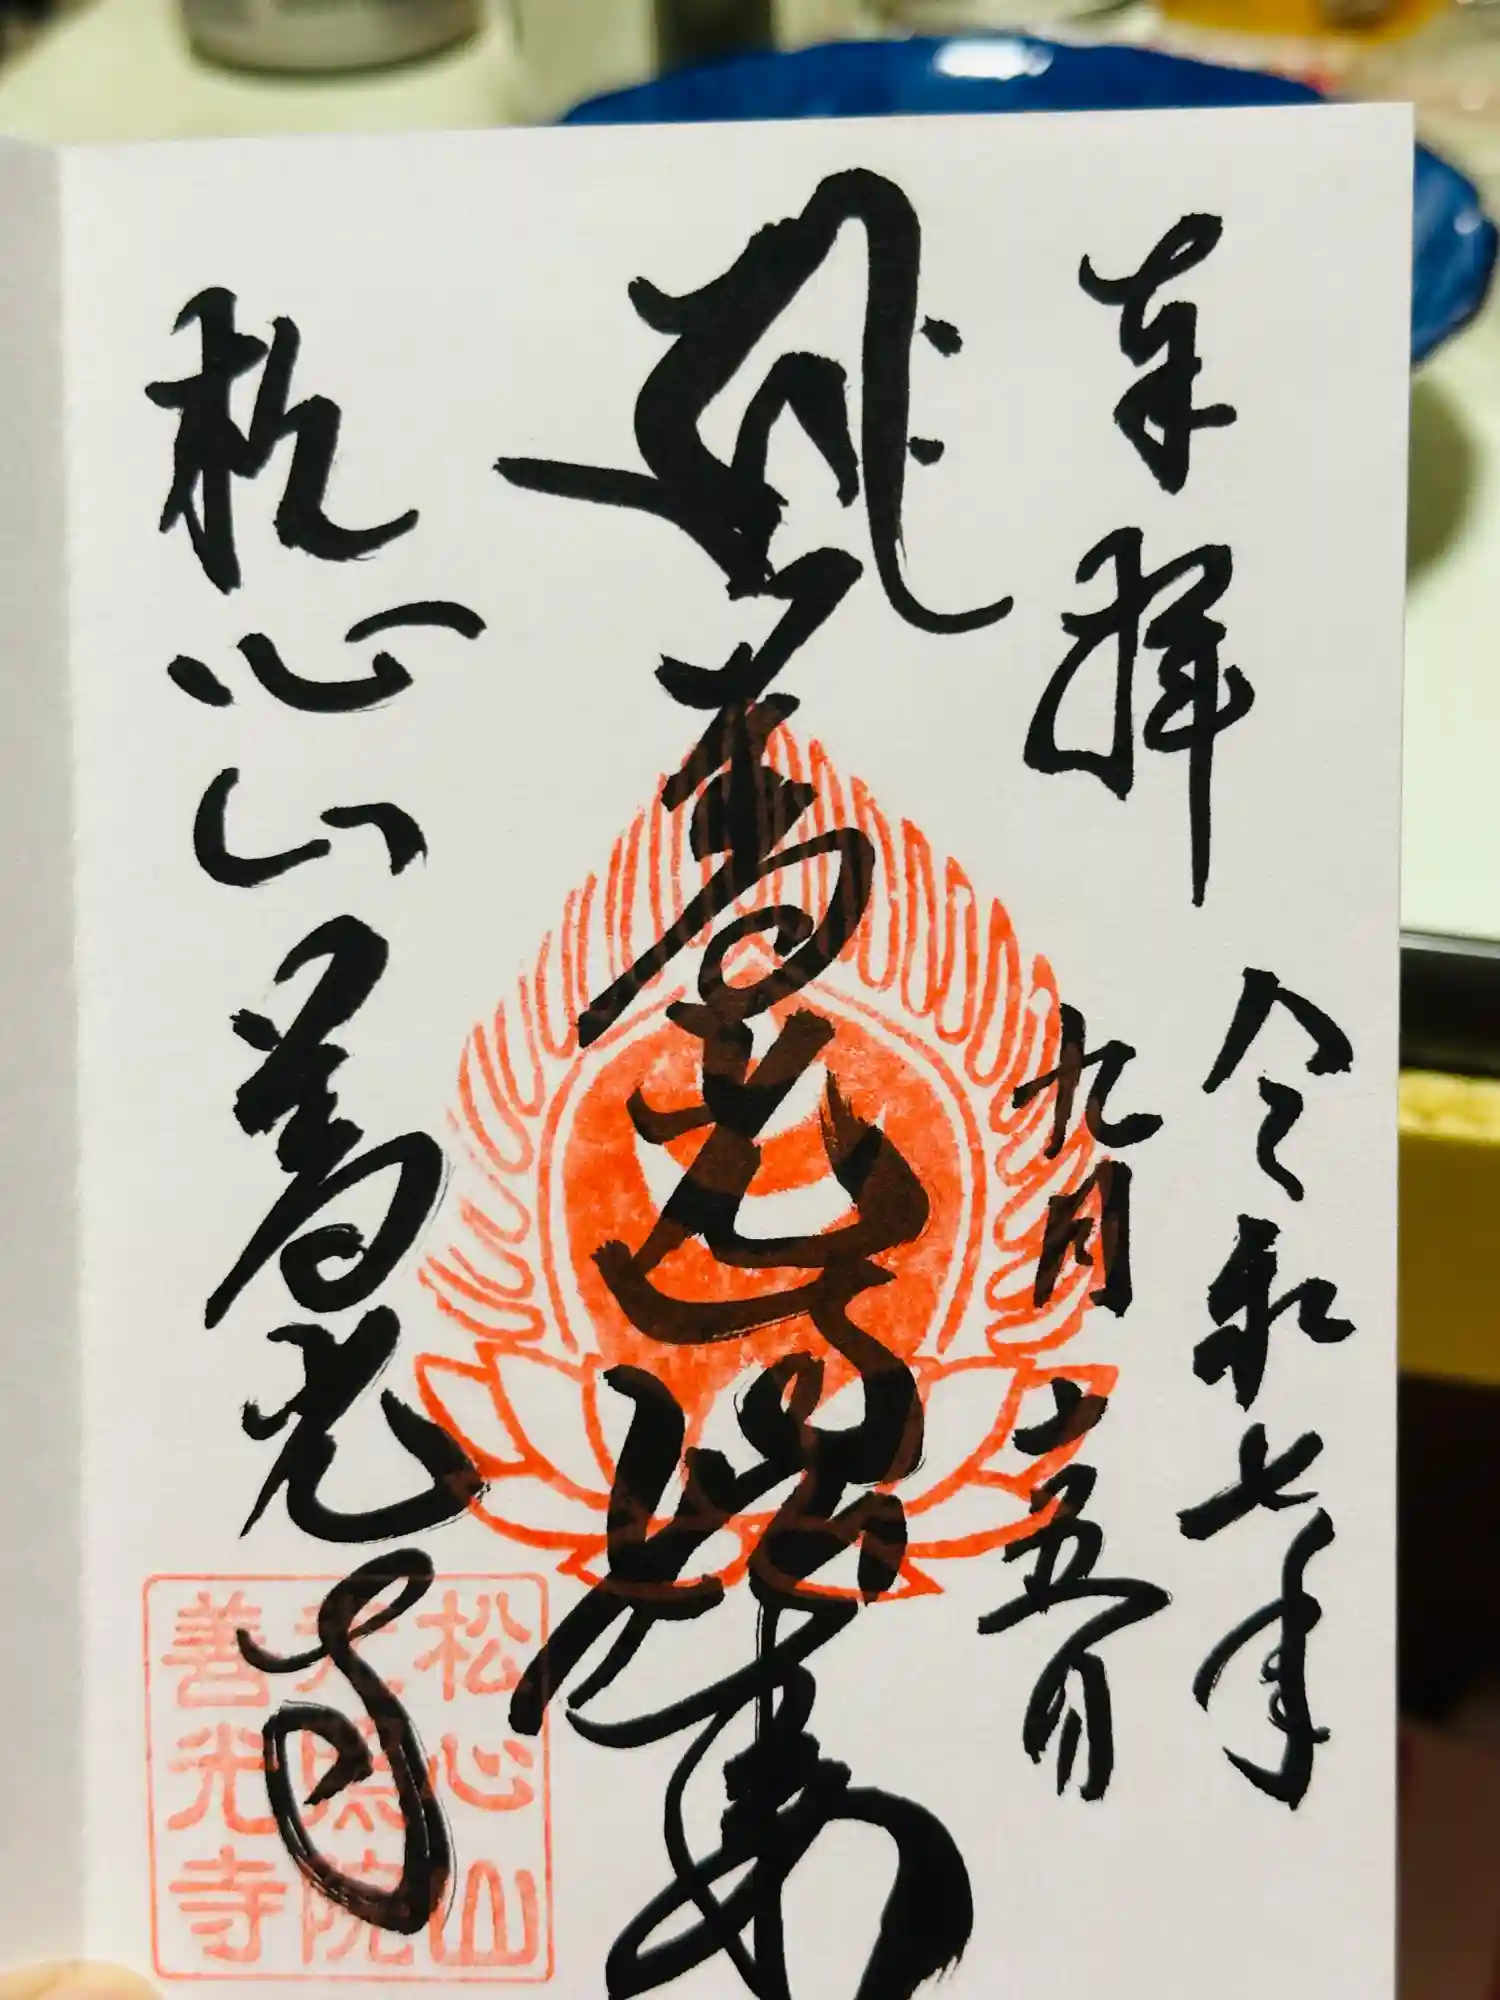 奉拝
令和七年
九月十五日
善光
松心山善光寺
松心山
照院
善光寺